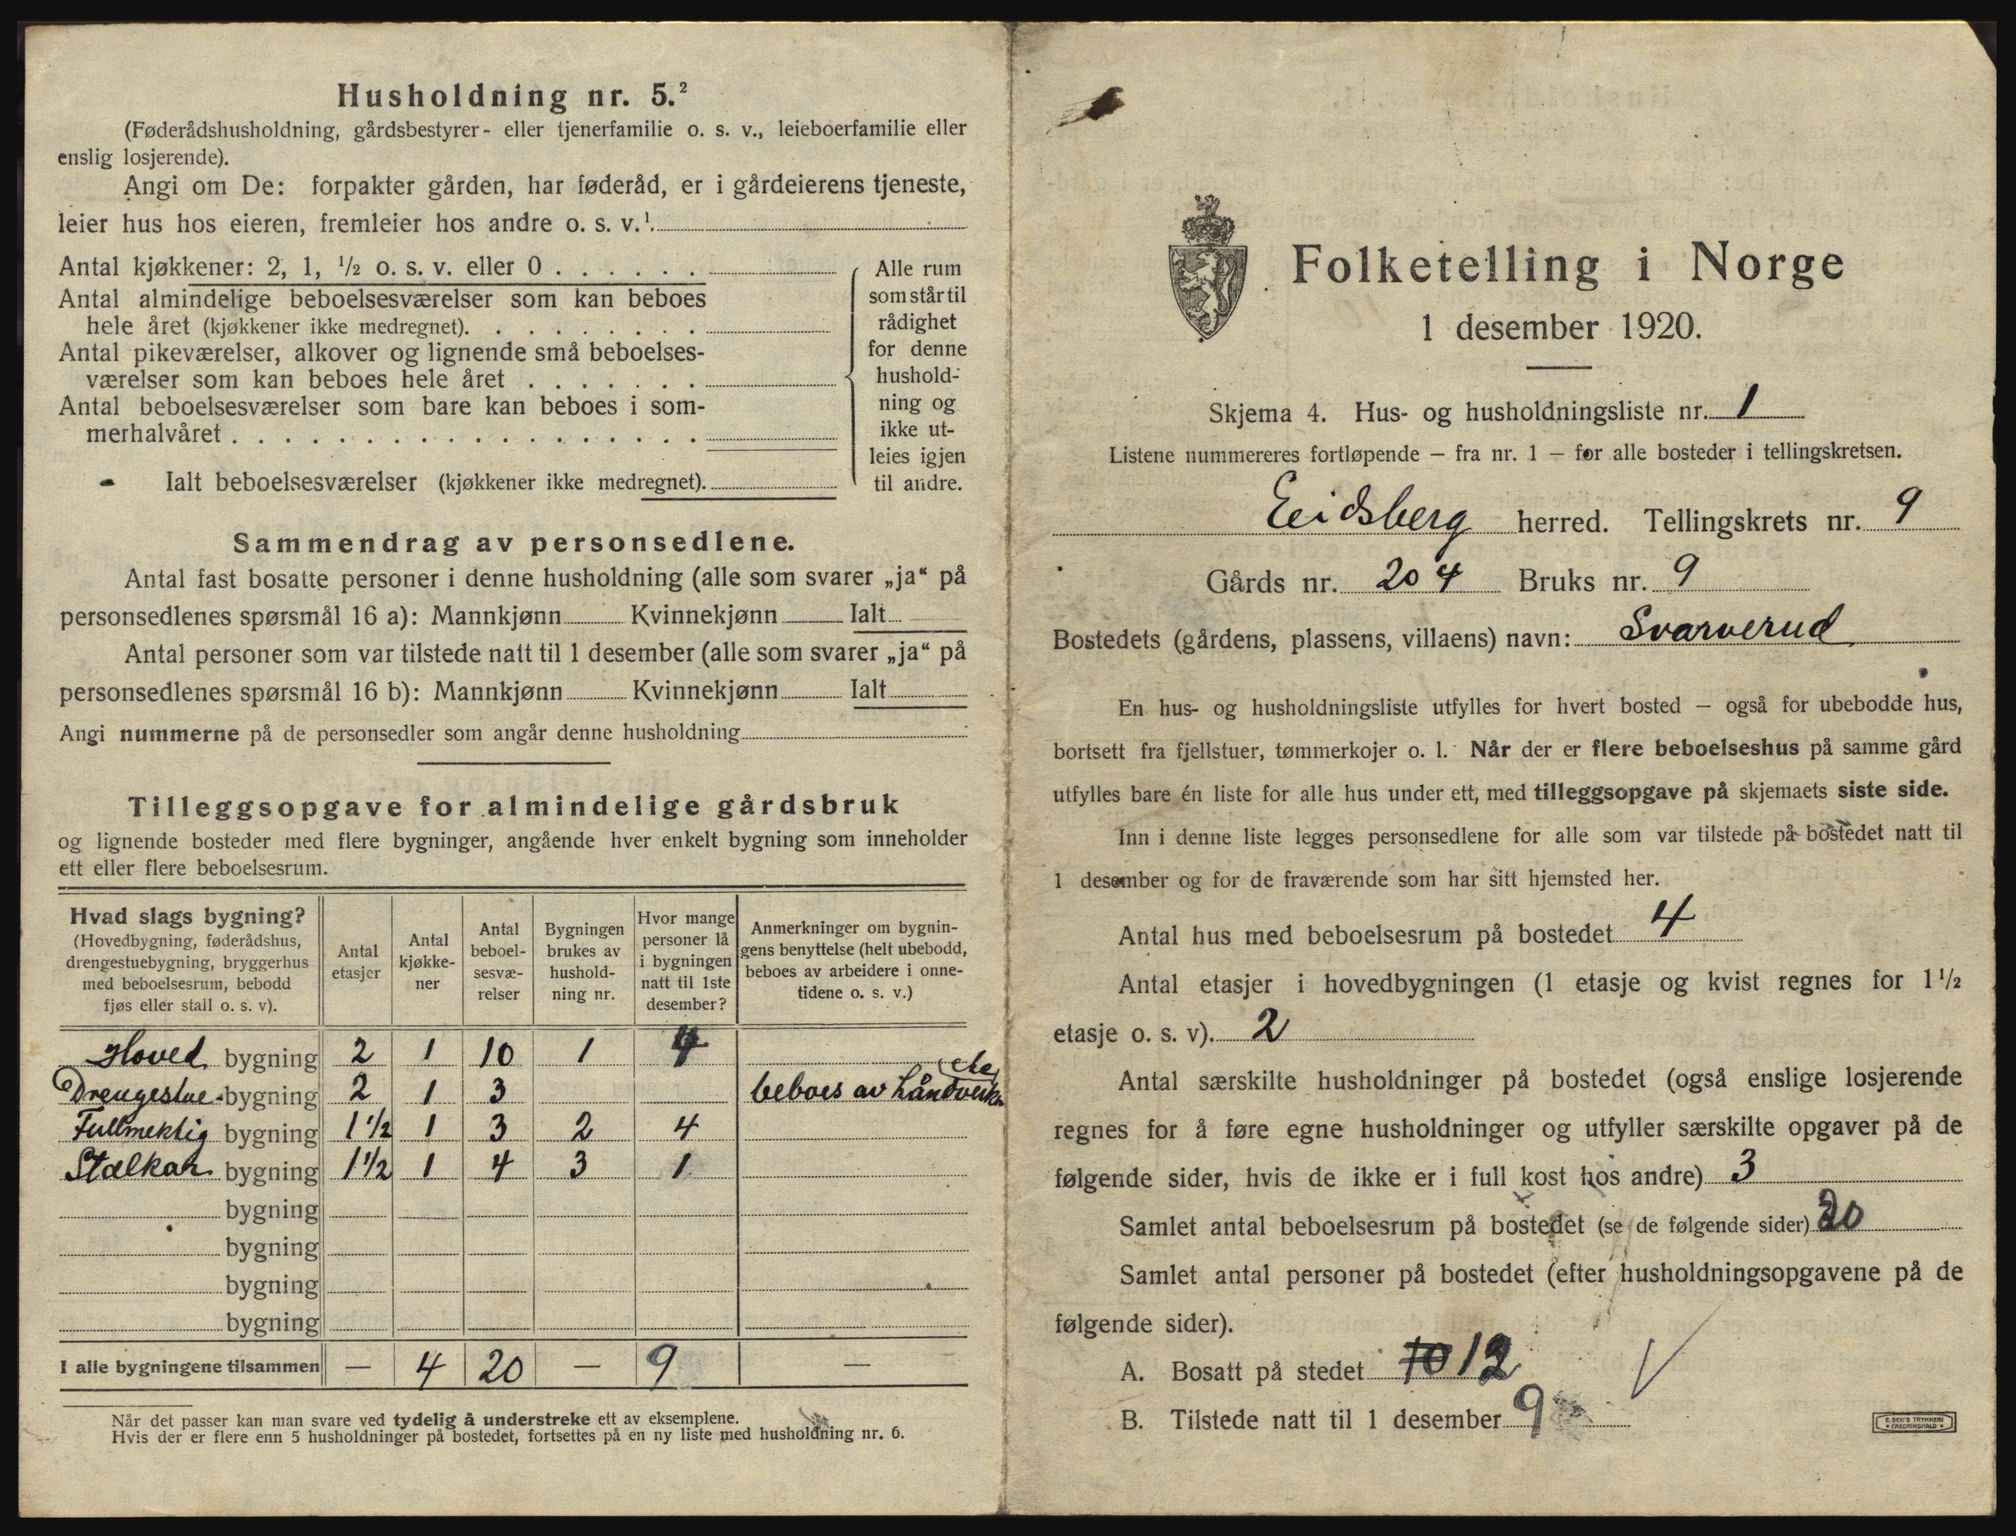 Husholdning nr. 5.²
(Føderådshusholdning, gårdsbestyrer- eller tjenerfamilie o. s. v., leieboerfamilie eller
enslig losjerende).
Angi om De: forpakter gården, har føderåd, er i gårdeierens tjeneste,
leier hus hos eieren, fremleier hos andre o. s. v.¹
Antal kjøkkener: 2, 1, ½ o. s. v. eller 0
Antal almindelige beboelsesværelser som kan beboes
hele året (kjøkkener ikke medregnet).
Antal pikeværelser, alkover og lignende små beboelses-
værelser som kan beboes hele året
Antal beboelsesværelser som bare kan beboes i som-
merhalvåret
Ialt beboelsesværelser (kjøkkener ikke medregnet).
Alle rum
som står til
rådighet
for denne
hushold-
ning og
ikke ut-
leies igjen
til andre.
Sammendrag av personsedlene.
Antal fast bosatte personer i denne husholdning (alle som svarer „ja“ på
personsedlenes spørsmål 16 a): Mannkjønn Kvinnekjønn Ialt
Antal personer som var tilstede natt til 1 desember (alle som svarer „ja“ på
personsedlenes spørsmål 16 b): Mannkjønn Kvinnekjønn Ialt
Angi nummerne på de personsedler som angår denne husholdning
Tilleggsopgave for almindelige gårdsbruk
og lignende bosteder med flere bygninger, angående hver enkelt bygning som inneholder
ett eller flere beboelsesrum.
Hvad slags bygning?
(Hovedbygning, føderådshus,
drengestuebygning, bryggerhus
med beboelsesrum, bebodd
fjøs eller stall o. s. v).
Antal
etasjer
Antal
kjøkke-
ner
Antal
beboel-
sesvæ-
relser
Bygningen
brukes av
hushold-
ning nr.
Hvor mange
personer lå
i bygningen
natt til 1ste
desember?
Anmerkninger om bygnin-
gens benyttelse (helt ubebodd,
beboes av arbeidere i onne-
tidene o. s. v.)
Hoved bygning 2 1 10 1 4
Drengestue- bygning 2 1 3 beboes av håndverkere
Fullmektig bygning 1½ 1 3 2 4
Stalkar bygning 1½ 1 4 3 1
bygning
bygning
bygning
bygning
I alle bygningene tilsammen — 4 20 — 9 —
Når det passer kan man svare ved tydelig å understreke ett av eksemplene.
Hvis der er flere enn 5 husholdninger på bostedet, fortsettes på en ny liste med husholdning nr. 6.
Folketelling i Norge
1 desember 1920.
Skjema 4. Hus- og husholdningsliste nr. 1
Listene nummereres fortløpende — fra nr. 1 — for alle bosteder i tellingskretsen.
Eidsberg herred. Tellingskrets nr. 9
Gårds nr. 204 Bruks nr. 9
Bostedets (gårdens, plassens, villaens) navn: Svarverud
En hus- og husholdningsliste utfylles for hvert bosted — også for ubebodde hus,
bortsett fra fjellstuer, tømmerkojer o. l. Når der er flere beboelseshus på samme gård
utfylles bare én liste for alle hus under ett, med tilleggsopgave på skjemaets siste side.
Inn i denne liste legges personsedlene for alle som var tilstede på bostedet natt til
1 desember og for de fraværende som har sitt hjemsted her.
Antal hus med beboelsesrum på bostedet 4
Antal etasjer i hovedbygningen (1 etasje og kvist regnes for 1½
etasje o. s. v). 2
Antal særskilte husholdninger på bostedet (også enslige losjerende
regnes for å føre egne husholdninger og utfyller særskilte opgaver på de
følgende sider, hvis de ikke er i full kost hos andre) 3
Samlet antal beboelsesrum på bostedet (se de følgende sider) 20
Samlet antal personer på bostedet (efter husholdningsopgavene på de
følgende sider).
A. Bosatt på stedet 10 12
B. Tilstede natt til 1 desember 9
E. SEM'S TRYKKERI
FREDRIKSHALD